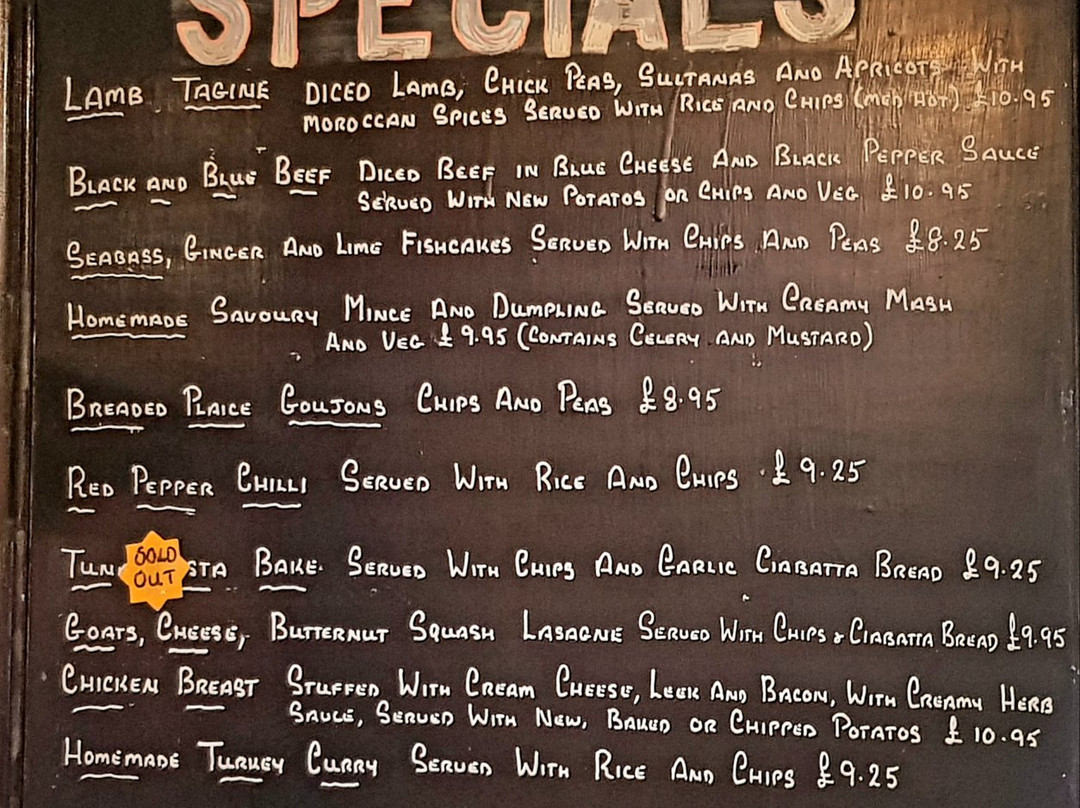 SPECIALS
LAMB TAGINE DICED LAMB, CHICK PEAS, SULTANAS AND APRICOTS WITH
MOROCCAN SPICES SERVED WITH RICE AND CHIPS (MED HOT) £10.95
BLACK AND BLUE BEEF DICED BEEF IN BLUE CHEESE AND BLACK PEPPER SAUCE
SERVED WITH NEW POTATOS OR CHIPS AND VEG £10.95
SEABASS, GINGER AND LIME FISHCAKES SERVED WITH CHIPS AND PEAS £8.25
HOMEMADE SAVOURY MINCE AND DUMPLING SERVED WITH CREAMY MASH
AND VEG £9.95 (CONTAINS CELERY AND MUSTARD)
BREADED PLAICE GOUJONS CHIPS AND PEAS £8.95
RED PEPPER CHILLI SERVED WITH RICE AND CHIPS £9.25
TUN STA BAKE SERVED WITH CHIPS AND GARLIC CIABATTA BREAD £9.25
SOLD
OUT
GOATS, CHEESE, BUTTERNUT SQUASH LASAGNE SERVED WITH CHIPS & CIABATTA BREAD £9.95
CHICKEN BREAST STUFFED WITH CREAM CHEESE, LEEK AND BACON, WITH CREAMY HERB
SAUCE, SERVED WITH NEW, BAKED OR CHIPPED POTATOS £10.95
HOMEMADE TURKEY CURRY SERVED WITH RICE AND CHIPS £9.25